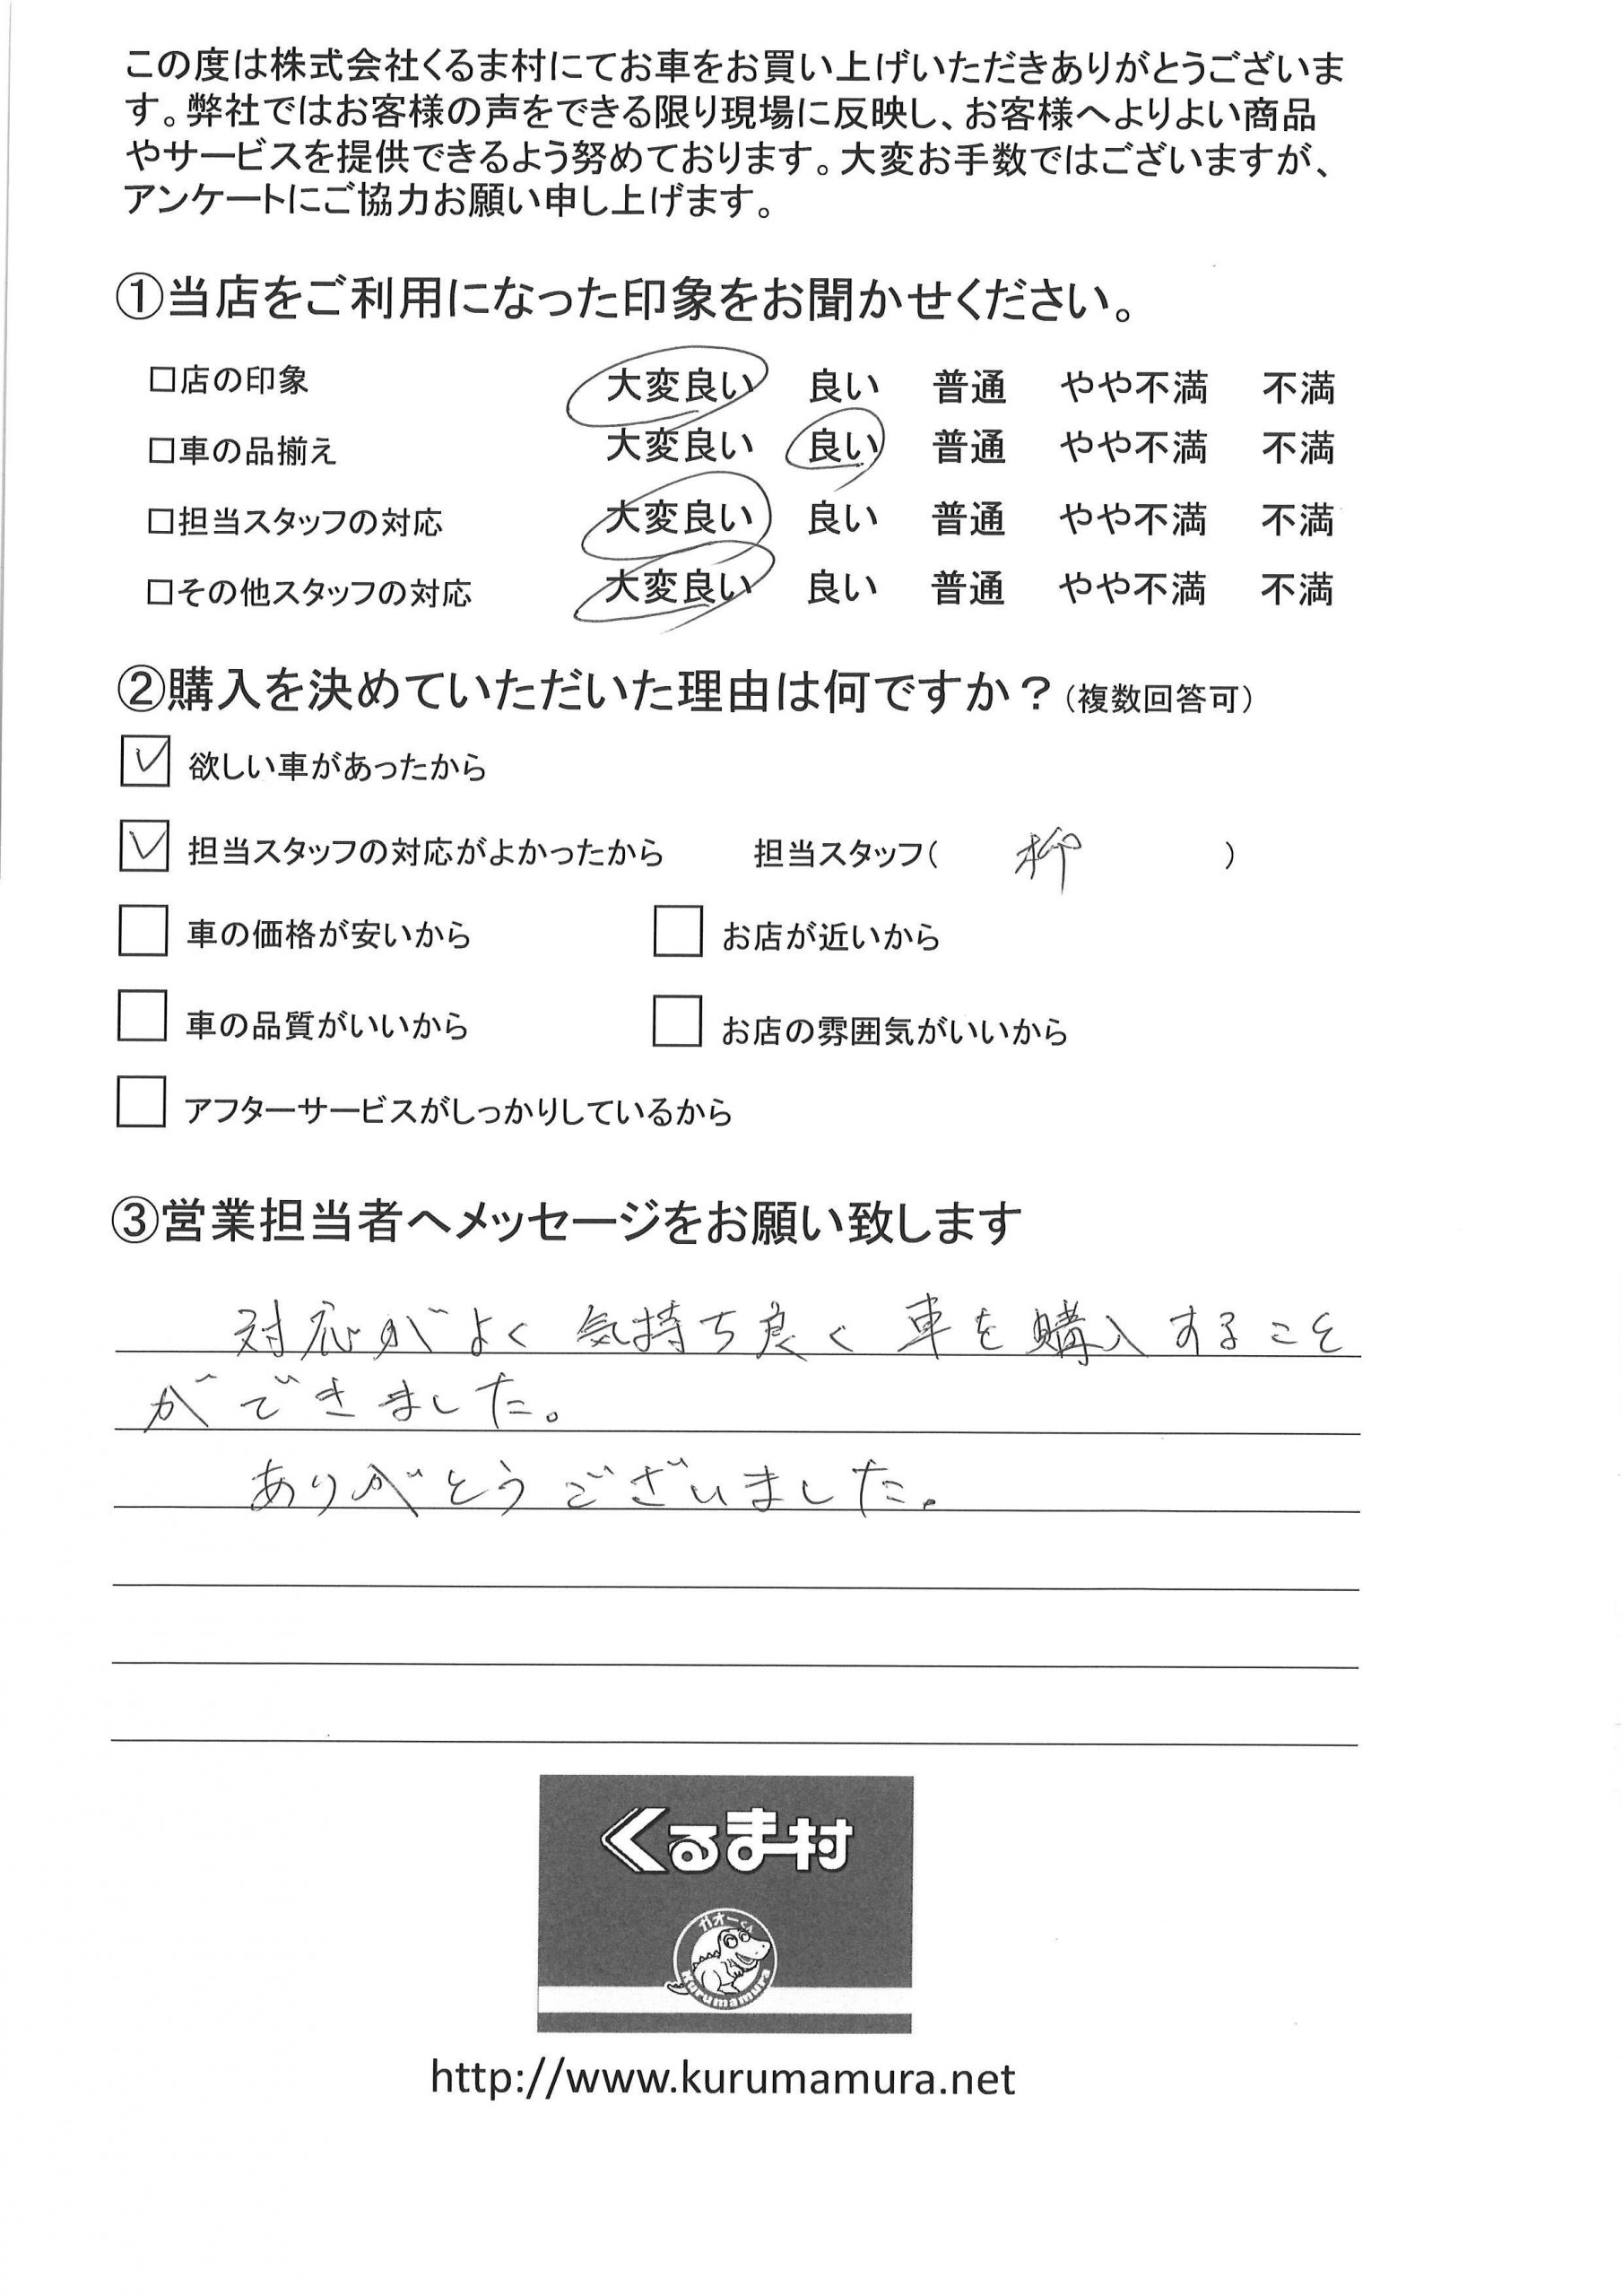 この度は株式会社くるま村にてお車をお買い上げいただきありがとうございま
す。弊社ではお客様の声をできる限り現場に反映し、お客様へよりよい商品
やサービスを提供できるよう努めております。大変お手数ではございますが、
アンケートにご協力お願い申し上げます。
①当店をご利用になった印象をお聞かせください。
□店の印象 大変良い 良い 普通 やや不満 不満
□車の品揃え 大変良い 良い 普通 やや不満 不満
□担当スタッフの対応 大変良い 良い 普通 やや不満 不満
□その他スタッフの対応 大変良い 良い 普通 やや不満 不満
②購入を決めていただいた理由は何ですか？（複数回答可）
☑ 欲しい車があったから
☑ 担当スタッフの対応がよかったから 担当スタッフ（ 柳 ）
□ 車の価格が安いから □ お店が近いから
□ 車の品質がいいから □ お店の雰囲気がいいから
□ アフターサービスがしっかりしているから
③営業担当者へメッセージをお願い致します
対応がよく気持ち良く車を購入すること
ができました。
ありがとうございました。
くるま村
ガオーくん
Kurumamura
http://www.kurumamura.net